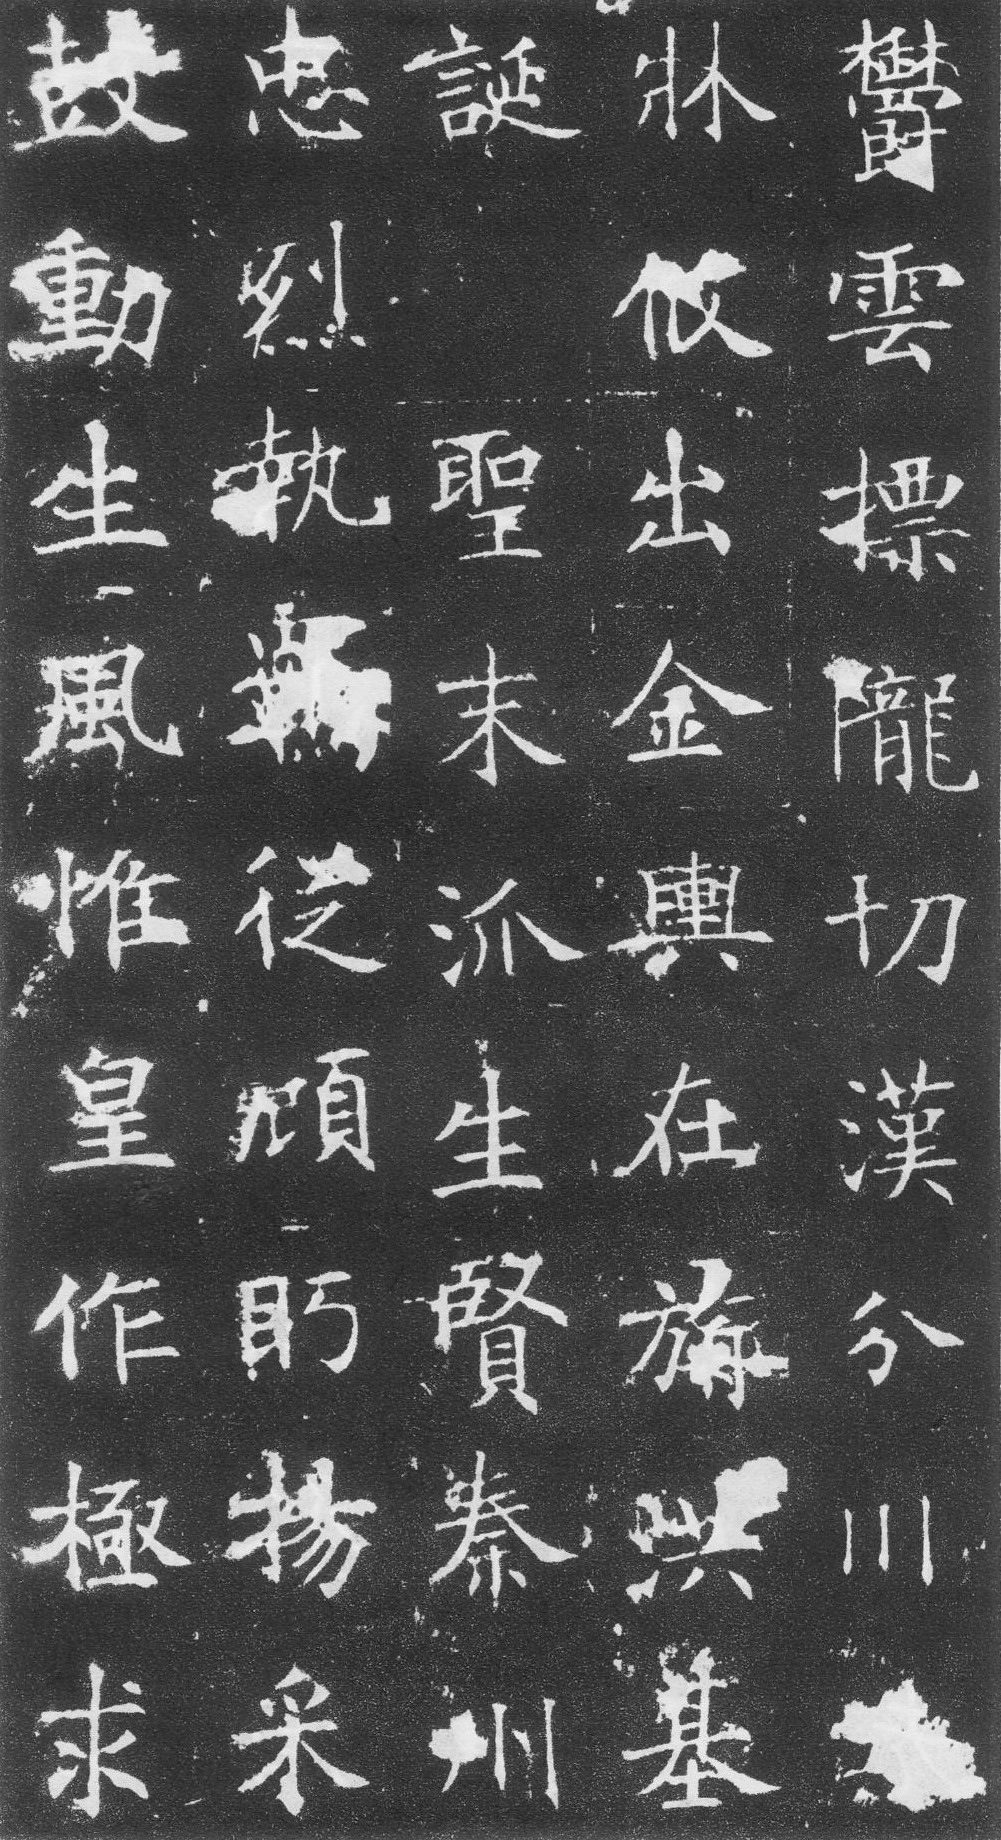 鬱雲摽隴切漢分川
牀攸出金輿在旃洪基
誕 聖末派生賢秦州
忠烈執從頋眄揚采
鼓動生風惟皇作極求